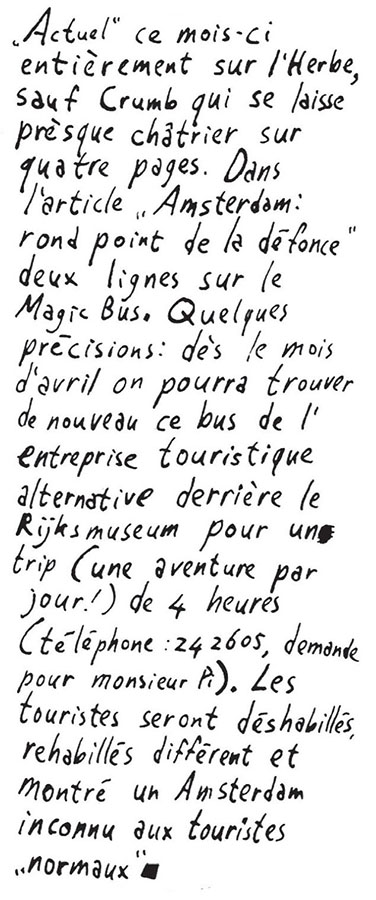 „Actuel" ce mois-ci
entièrement sur l'Herbe,
sauf Crumb qui se laisse
prèsque châtrier sur
quatre pages. Dans
l'article „Amsterdam:
rond point de la défonce"
deux lignes sur le
Magic Bus. Quelques
précisions: dès le mois
d'avril on pourra trouver
de nouveau ce bus de l'
entreprise touristique
alternative derrière le
Rijksmuseum pour un
trip (une aventure par
jour!) de 4 heures
(téléphone: 242605, demande
pour monsieur Pi). Les
touristes seront déshabillés,
rehabillés différent et
montré un Amsterdam
inconnu aux touristes
„normaux"